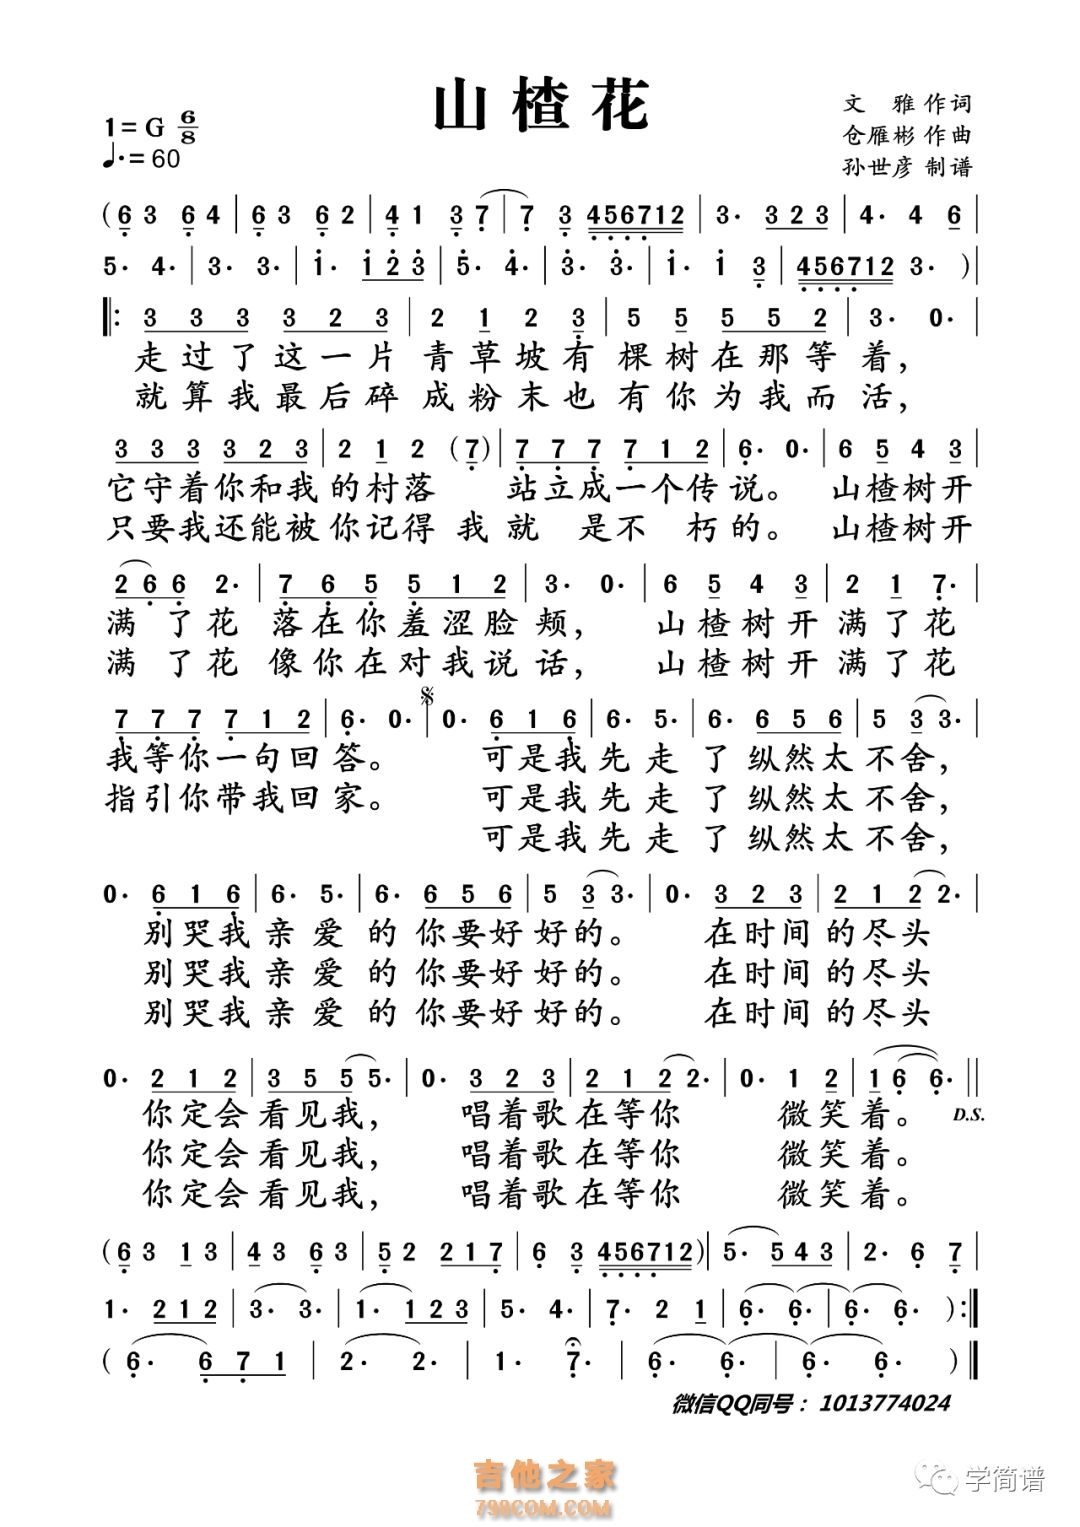 山楂花
1=G 6/8
♩.=60
文 雅 作词
仓雁彬 作曲
孙世彦 制谱
(6 3 6 4 | 6 3 6 2 | 4 1 3 7 | 7 3 456712 | 3· 3 2 3 | 4· 4 6 |
5· 4· | 3· 3· | 1· 1 2 3 | 5· 4· | 3· 3· | 1· 1 3 | 456712 3· )|
‖: 3 3 3 3 2 3 | 2 1 2 3 | 5 5 5 5 2 | 3· 0· |
走过了这一片 青草坡有 棵树在那等着,
就算我最后碎 成粉末也 有你为我而活,
3 3 3 3 2 3 | 2 1 2 (7) | 7 7 7 7 1 2 | 6· 0· | 6 5 4 3 |
它守着你和我的村落 站立成一个传说。 山楂树开
只要我还能被你记得 我就 是不 朽的。 山楂树开
2 6 6 2· | 7 6 5 5 1 2 | 3· 0· | 6 5 4 3 | 2 1 7· |
满 了花 落在你羞涩脸 颊, 山楂树开满了花
满 了花 像你在对我说 话, 山楂树开满了花
7 7 7 7 1 2 | 6· 0· | 0· 6 1 6 | 6· 5· | 6· 6 5 6 | 5 3 3· |
我等你一句回答。 可是我先走 了 纵然太不舍,
指引你带我回家。 可是我先走 了 纵然太不舍,
可是我先走 了 纵然太不舍,
0· 6 1 6 | 6· 5· | 6· 6 5 6 | 5 3 3· | 0· 3 2 3 | 2 1 2 2· |
别哭我 亲 爱 的 你要好 好的。 在时间 的尽头
别哭我 亲 爱 的 你要好 好的。 在时间 的尽头
别哭我 亲 爱 的 你要好 好的。 在时间 的尽头
0· 2 1 2 | 3 5 5 5· | 0· 3 2 3 | 2 1 2 2· | 0· 1 2 | 1 6 6· ‖
D.S.
你定会看见我, 唱着歌在等你 微笑着。
你定会看见我, 唱着歌在等你 微笑着。
你定会看见我, 唱着歌在等你 微笑着。
(6 3 1 3 | 4 3 6 3 | 5 2 2 1 7 | 6 3 456712)| 5· 5 4 3 | 2· 6 7 |
1· 2 1 2 | 3· 3· | 1· 1 2 3 | 5· 4· | 7· 2 1 | 6· 6· | 6· 6· ) :‖
(6· 6 7 1 | 2· 2· | 1· 7· | 6· 6· | 6· 6· ) ‖
微信QQ同号：1013774024
吉他之家
798COM.COM
学简谱